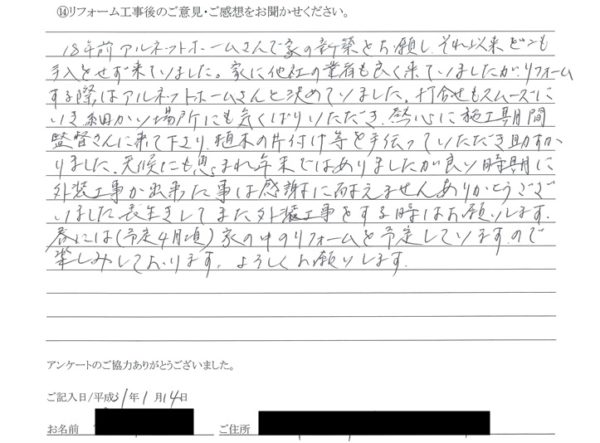 ⑭リフォーム工事後のご意見・ご感想をお聞かせください。
18年前アルネットホームさんで家の新築をお願いし、それ以来どこも
手入をせず来ていました。家に他社の業者も良く来ていましたが、リフォーム
する際はアルネットホームさんと決めていました。打合せもスムーズに
いき細かい場所にも気くばりいただき、熱心に施工期間
監督さんに来て下さり、植木の片付け等を手伝っていただき助すか
りました。天候にも恵まれ年末ではありましたが良い時期に
外装工事が出来た事は感謝に耐えませんありがとうござ
いました長生きしてまた外装工事をする時はお願いします。
春には(予定4月頃)家の中のリフォームを予定していますので
楽しみしております。よろしくお願いします。
アンケートのご協力ありがとうございました。
ご記入日/平成31年1月14日
お名前 ご住所